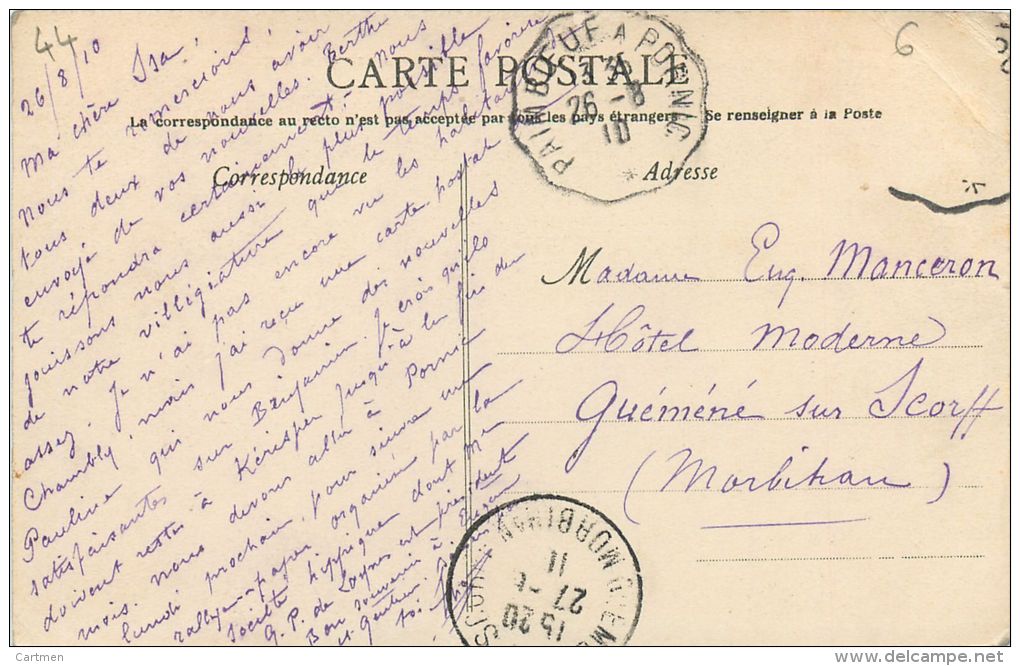 44
6
CARTE POSTALE
La correspondance au recto n'est pas acceptée par tous les pays étrangers Se renseigner à la Poste
Correspondance
Adresse
PAIMBOEUF A PORNIC
26 - 8
10
26/8/10
Ma chère Isa!
Nous te remercions
tous deux de nous avoir
envoyé de vos nouvelles. Berthe
te répondra certainement. Nous
jouissons nous aussi le plus possible
de notre villégiature que le temps favorise
assez. Je n'ai pas encore vu les habitants
Chambly, mais j'ai reçu une carte postale
Pauline qui nous donne des nouvelles
satisfaisantes sur Benjamin. Je crois qu'ils
doivent rester à Kérisper jusqu'à la fin du
mois. Nous devons aller à Pornic
lundi prochain, pour suivre un
rallye-paper organisé par la
Société hippique dont Mr
G. P. de Loynes est président
Bon souvenir à Eugène
et
toi.
Madame Eug. Manceron
Hôtel Moderne
Guéméné sur Scorff
(Morbihan)
MORBIHAN
15 20
27 -
11
Cartmen
delcampe.net